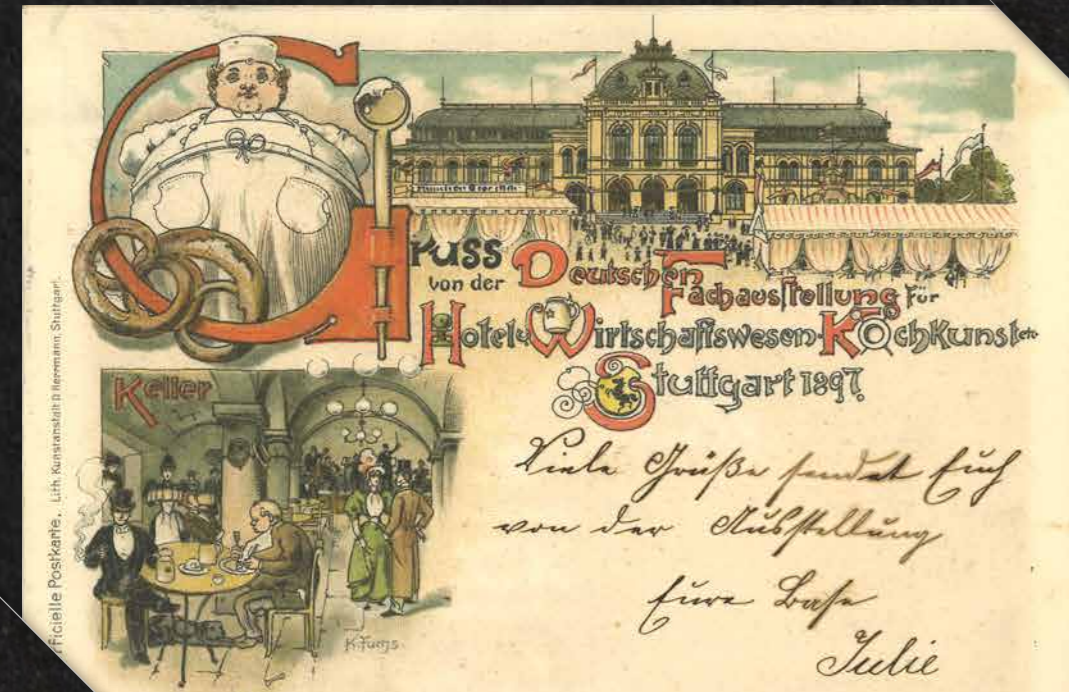 Gruss
von der Deutschen
Fachausstellung für
Hotel- u. Wirtschaftswesen Kochkunst etc.
Stuttgart 1897.
Keller
K. Fuchs.
Viele Grüße sendet Euch
von der Ausstellung
Eure Base
Julie
fficielle Postkarte. Lith. Kunstanstalt D Herrmann, Stuttgart.